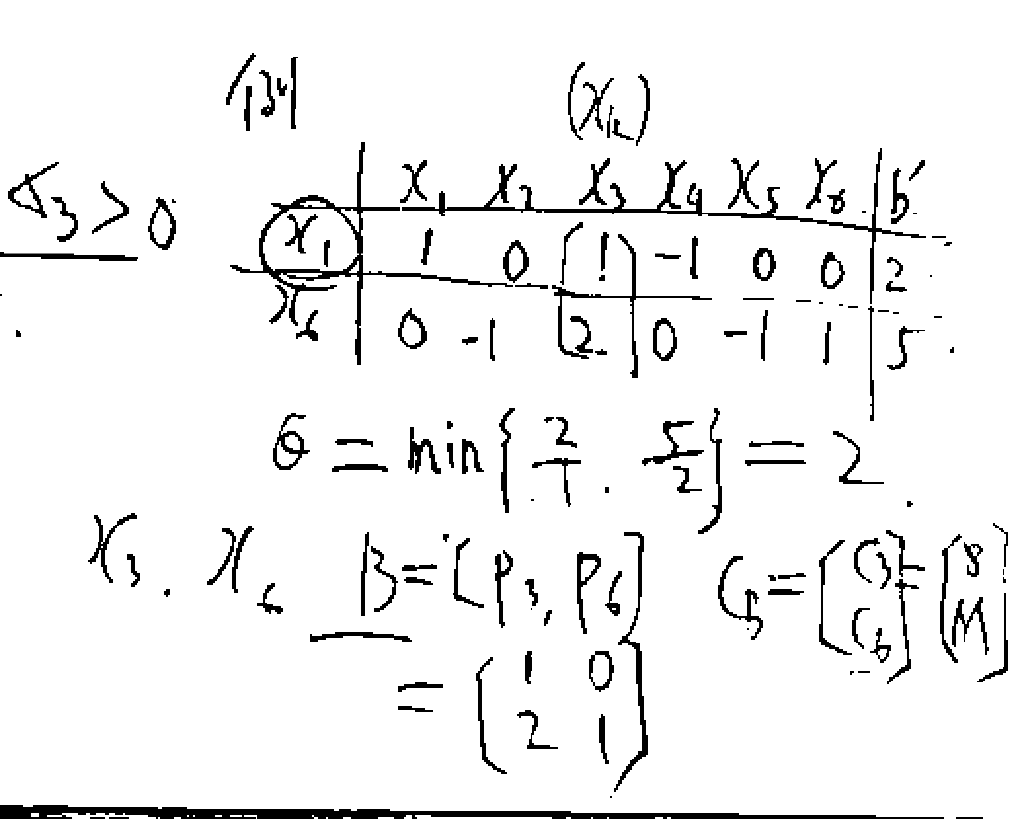 (x_k)
σ_3 > 0
x_1 x_2 x_3 x_4 x_5 x_6 b'
x_1 1 0 1 -1 0 0 2
x_6 0 -1 2 0 -1 1 5
θ = min{2/1, 5/2} = 2.
x_3, x_6 B = [P_3, P_6] C_B = [C_3 C_6] = [8 M]
= [1 0
2 1]